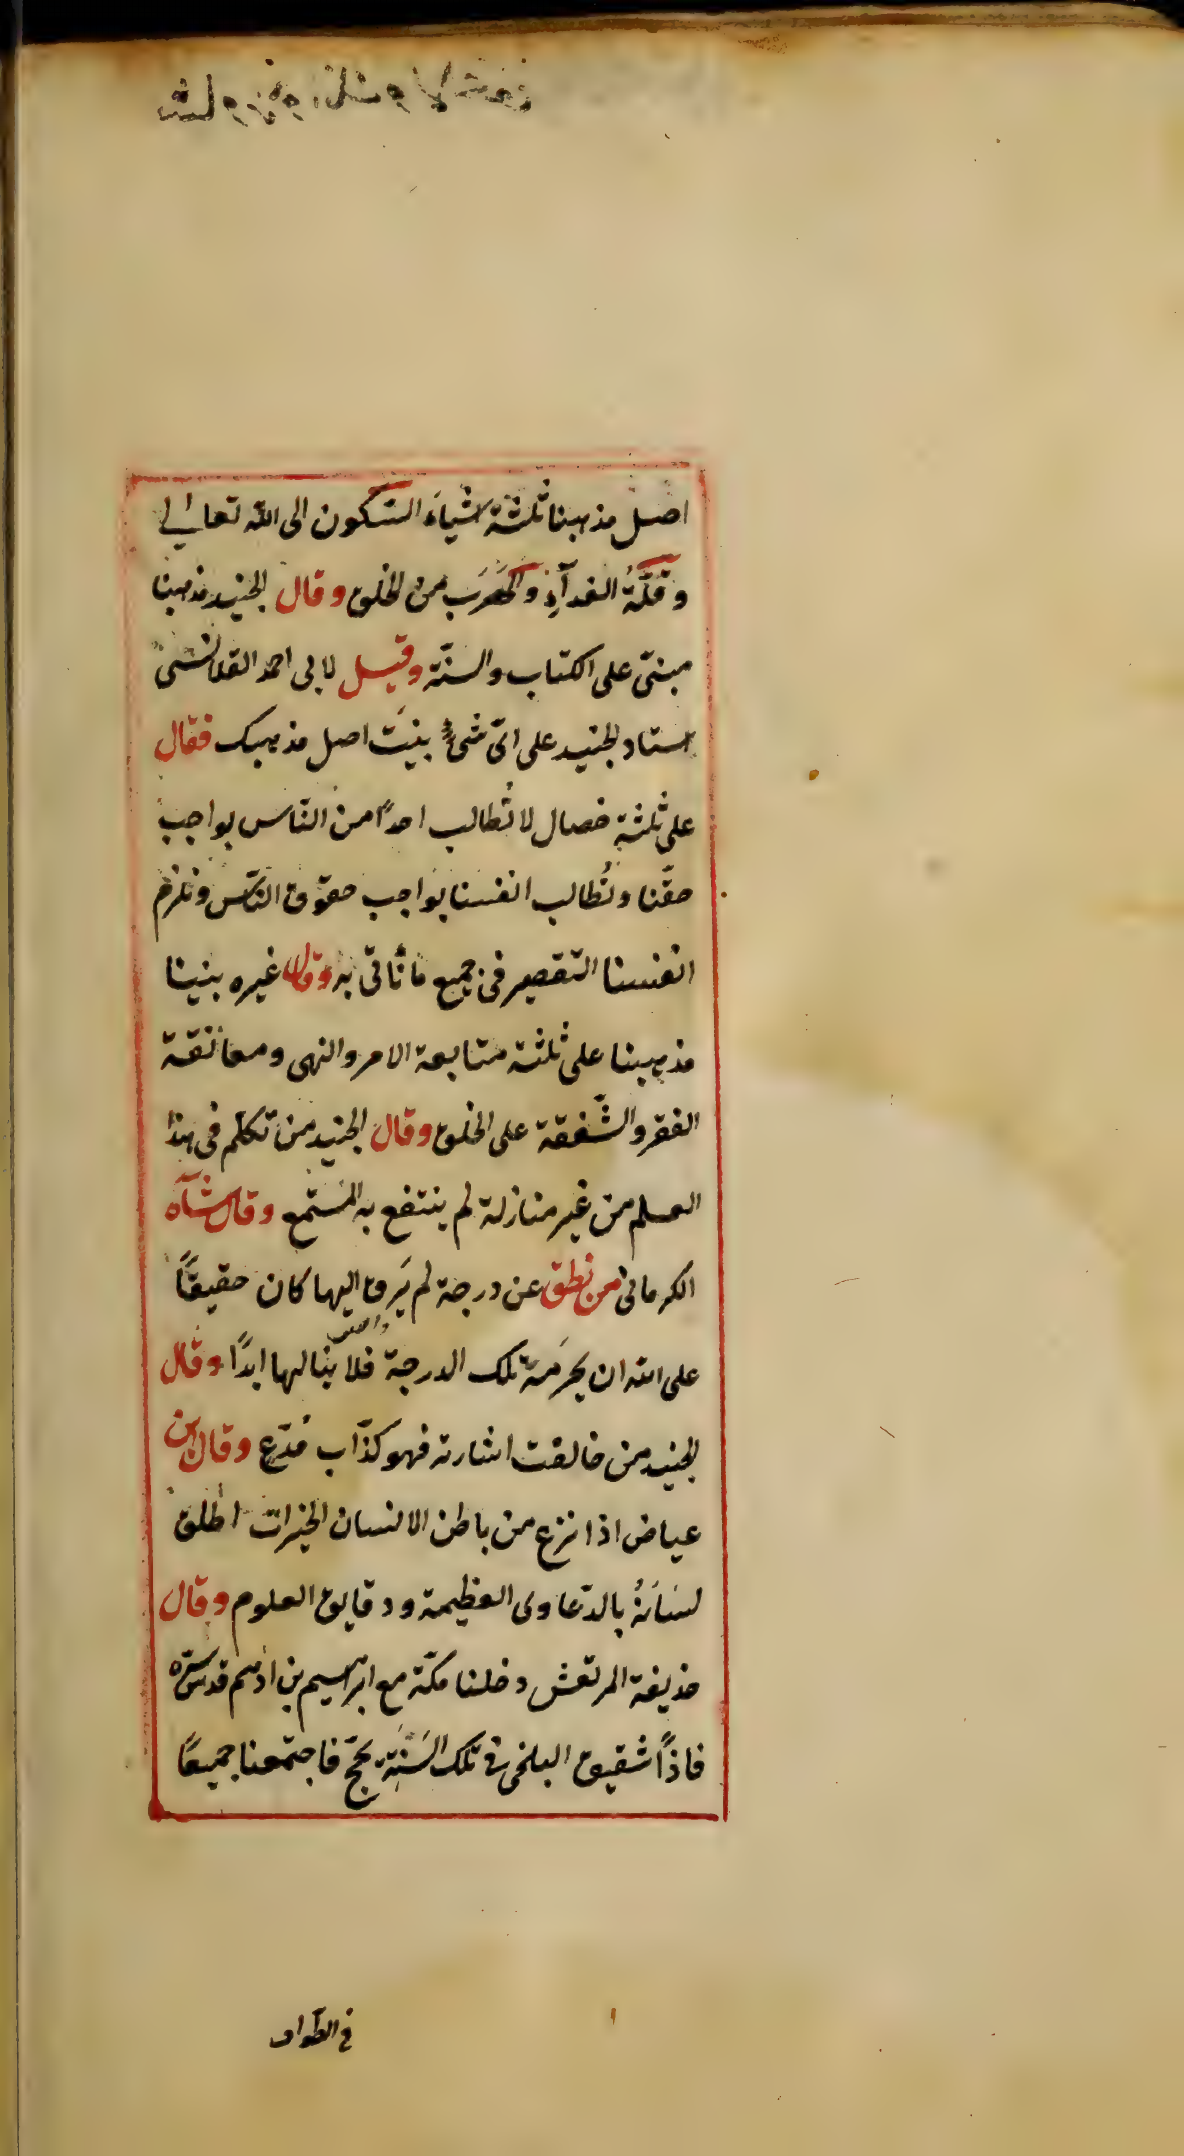 اصل مذهبنا ثلثة اشياء السكون الى الله تعالى
وقلّةُ الغدآءِ والهَرَب من الخلق وقال الجنيد مذهبنا
مبنىّ على الكتاب والسنّة وقيل لابى احمد القلانسىّ
استاد الجنيد على اىّ شىءٍ بنيتَ اصل مذهبك فقال
على ثلثة خصال لا نُطالب احدًا من النّاس بواجب
حقّنا ونُطالب انفسنا بواجب حقوق النّاس ونلزم
انفسنا التقصير فى جميع ما نأتى به وقال غيره بنينا
مذهبنا على ثلثة متابعة الامر والنهى ومعانقة
الفقر والشّفقة على الخلق وقال الجنيد من تكلم فى هذا
العلم من غير منازلة لم ينتفع به المستمع وقال شآه
الكرمانى من نطق عن درجة لم يَرق اليها كان حقيقًا
على الله ان يحرمه تلك الدرجة فلا ينالها ابدًا وقال
الجنيد من خالفت اشارته فهو كذّاب مُدّعٍ وقال ابن
عياض اذا نزع من باطن الانسان الخيرات اطلق
لسَانهُ بالدّعاوى العظيمة ودقايق العلوم وقال
حذيفة المرتعش دخلنا مكّة مع ابرهيم بن ادهم قدس سرّه
فاذًا شقيق البلخى فى تلك السَنَة يحجّ فاجتمعنا جميعًا
فى الطّواف